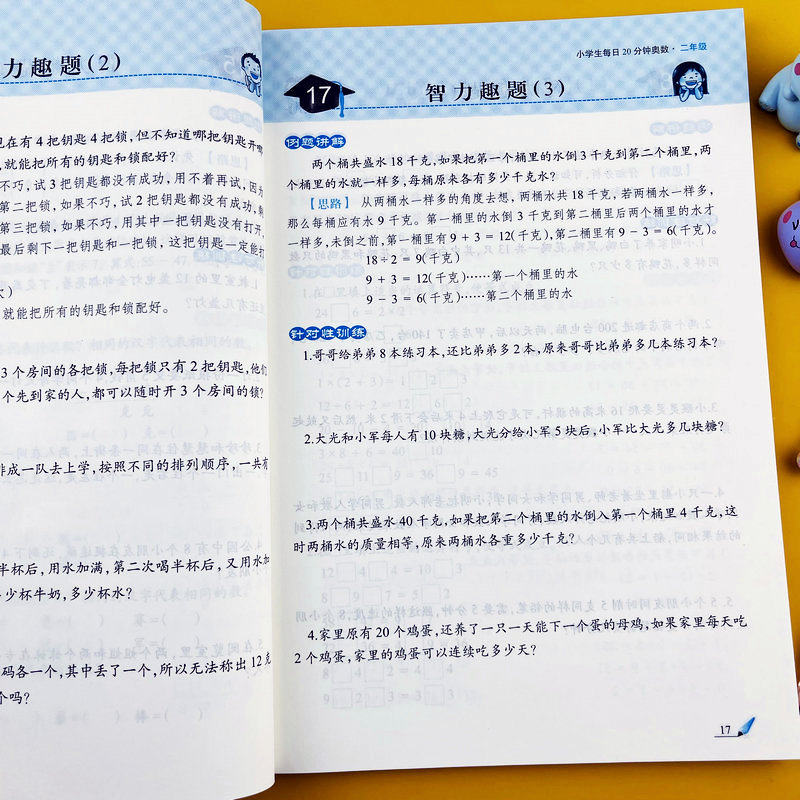 力趣题(2)
现在有4把钥匙4把锁,但不知道哪把钥匙开哪
,就能把所有的钥匙和锁配好?
不巧,试3把钥匙都没有成功,用不着再试,因为
第二把锁,如果不巧,试2把钥匙都没有成功,剩
第三把锁,如果不巧,用其中一把钥匙没有打开,
最后剩下一把钥匙和一把锁,这把钥匙一定能打
就能把所有的钥匙和锁配好。
3个房间的各把锁,每把锁只有2把钥匙,他们
个先到家的人,都可以随时开3个房间的锁?
排成一队去上学,按照不同的排列顺序,一共有
半杯后,用水加满,第二次喝半杯后,又用水加
少杯牛奶,多少杯水?
码各一个,其中丢了一个,所以无法称出12克
个吗?
小学生每日20分钟奥数·二年级
17
智力趣题(3)
例题讲解
两个桶共盛水18千克,如果把第一个桶里的水倒3千克到第二个桶里,两
个桶里的水就一样多,每桶原来各有多少千克水?
【思路】 从两桶水一样多的角度去想,两桶水共18千克,若两桶水一样多,
那么每桶应有水9千克。第一桶里的水倒3千克到第二桶里后两个桶里的水才
一样多,未倒之前,第一桶里有9+3=12(千克),第二桶里有9-3=6(千克)。
18÷2=9(千克)
9+3=12(千克)……第一个桶里的水
9-3=6(千克)……第二个桶里的水
针对性训练
1.哥哥给弟弟8本练习本,还比弟弟多2本,原来哥哥比弟弟多几本练习本?
2.大光和小军每人有10块糖,大光分给小军5块后,小军比大光多几块糖?
3.两个桶共盛水40千克,如果把第二个桶里的水倒入第一个桶里4千克,这
时两桶水的质量相等,原来两桶水各重多少千克?
4.家里原有20个鸡蛋,还养了一只一天能下一个蛋的母鸡,如果家里每天吃
2个鸡蛋,家里的鸡蛋可以连续吃多少天?
17